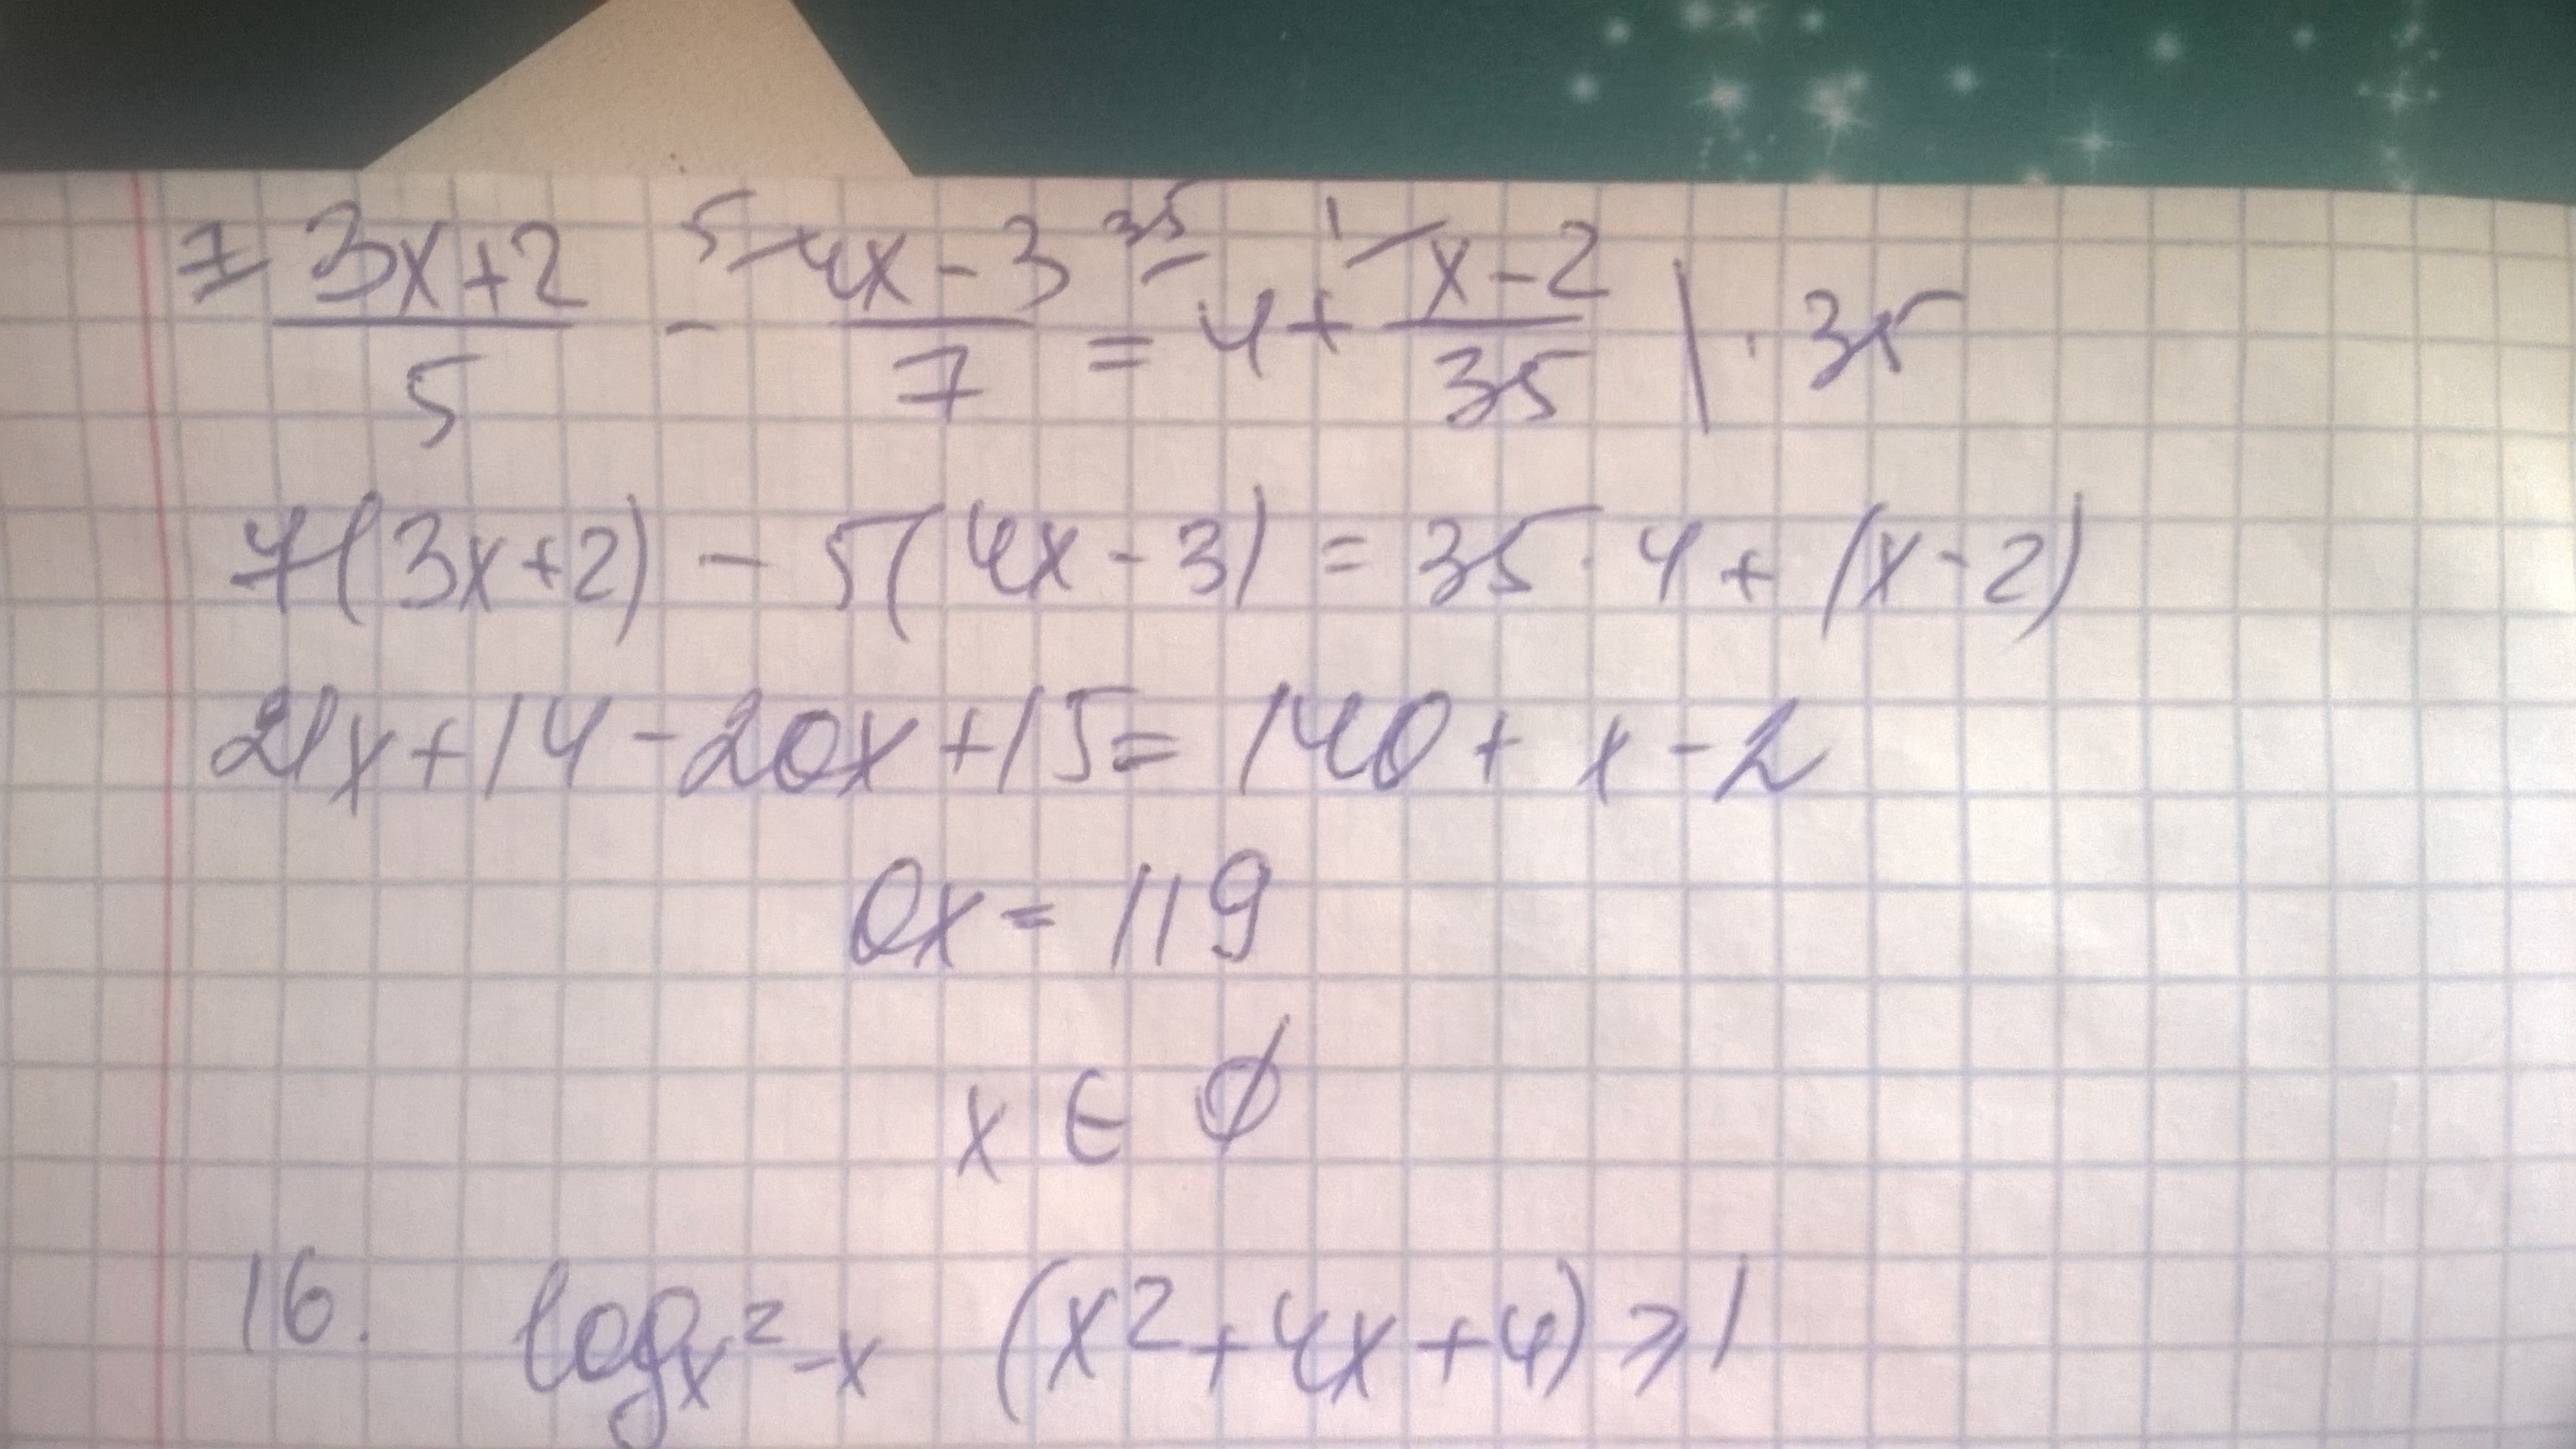 7 (3x+2)/5 - 5 (4x-3)/7 = 35 4 + 1 (x-2)/35 | · 35
7(3x+2) - 5(4x-3) = 35 · 4 + (x-2)
21x+14-20x+15=140+x-2
0x=119
x ∈ ∅
16. log_{x²-x} (x²+4x+4) ⩾ 1